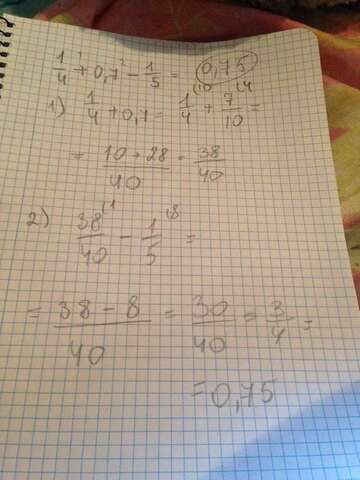 1/4 +¹ 0,7 -² 1/5 = 0,75
1) 1/4 + 0,7 = 1/4 (10 + 7/10 (4 =
= 10 + 28/40 = 38/40
2) 38/40 (1 - 1/5 (8 =
= 38 - 8/40 = 30/40 = 3/4 =
= 0,75